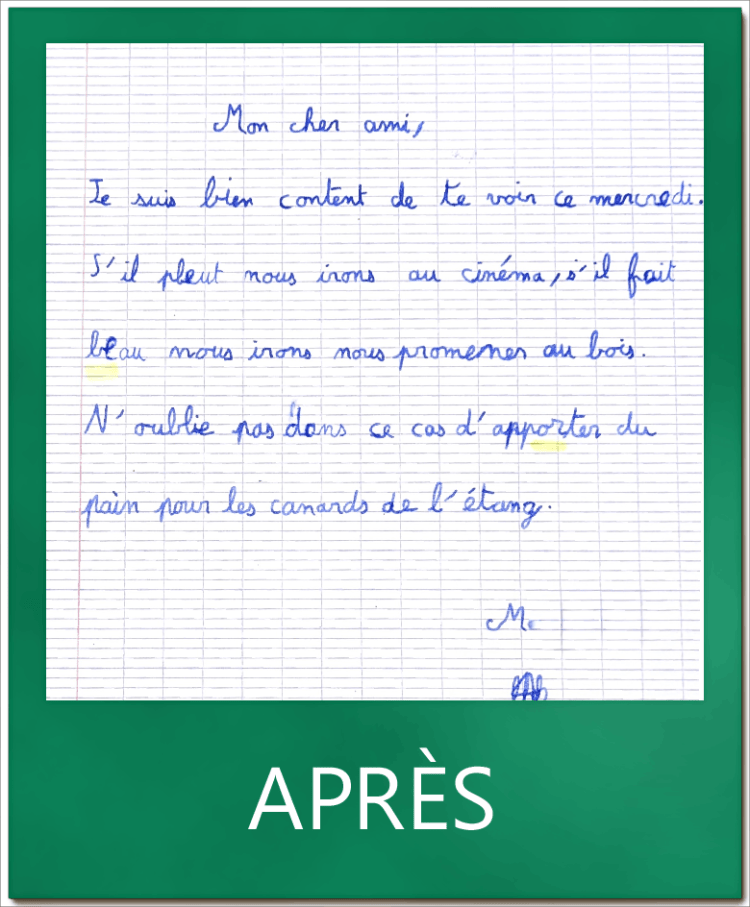 Mon cher ami,
Je suis bien content de te voir ce mercredi.
S'il pleut nous irons au cinéma, s'il fait
beau nous irons nous promener au bois.
N'oublie pas dans ce cas d'apporter du
pain pour les canards de l'étang.
APRÈS